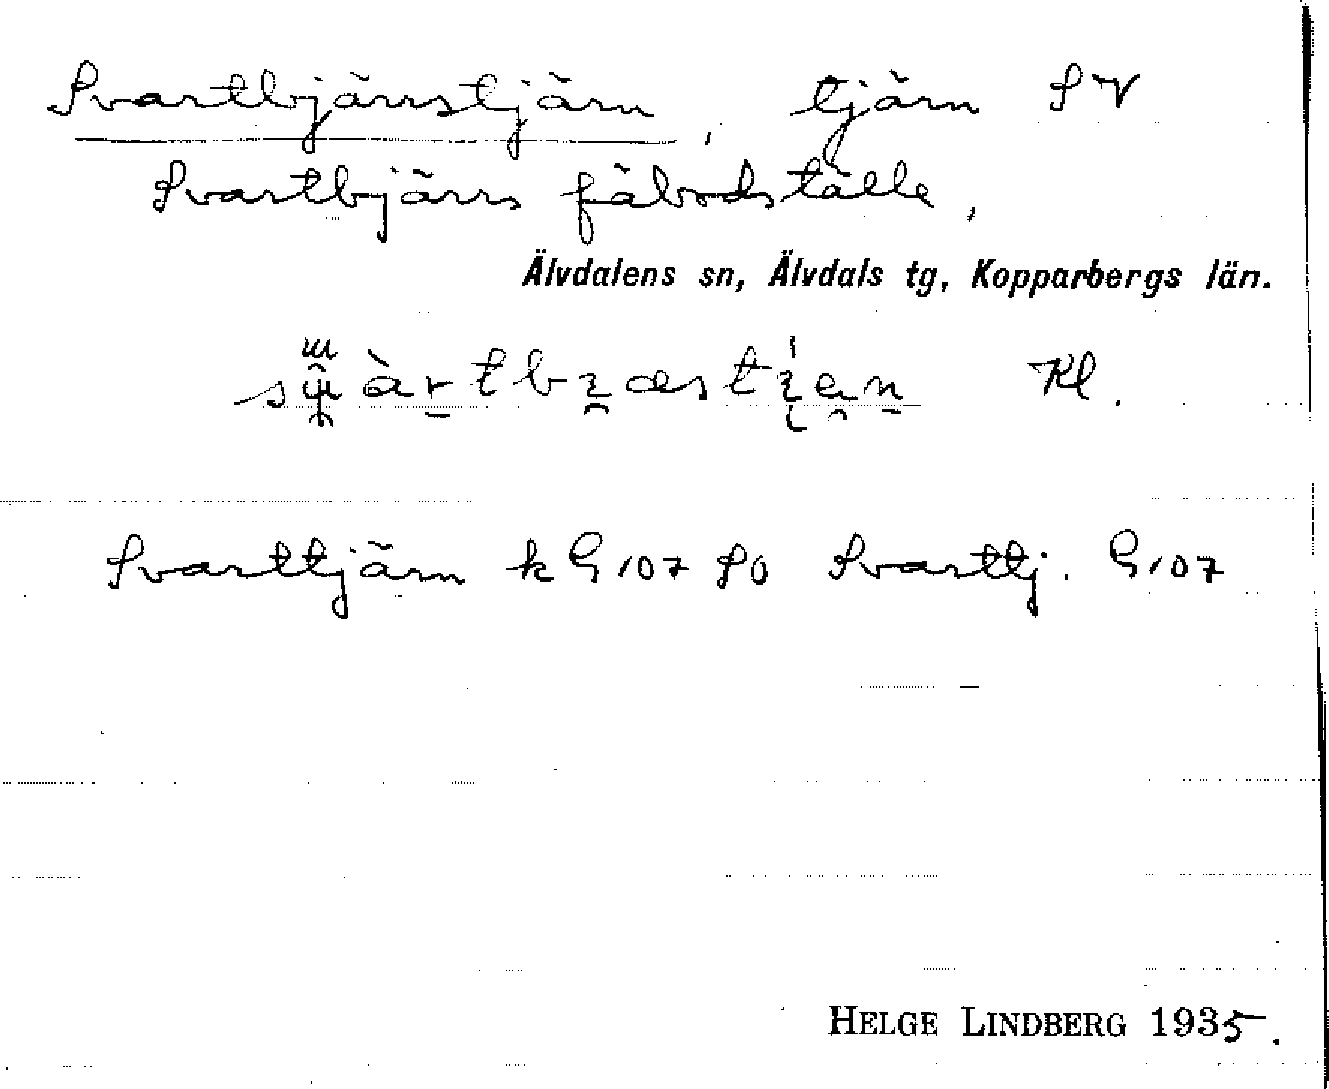 Svartbjärrstjärn, tjärn SV
Svartbjärrs fäbodställe,
Älvdalens sn, Älvdals tg, Kopparbergs län.
Kl.
Svarttjärn k G107 So Svarttj. G107
HELGE LINDBERG 1935.